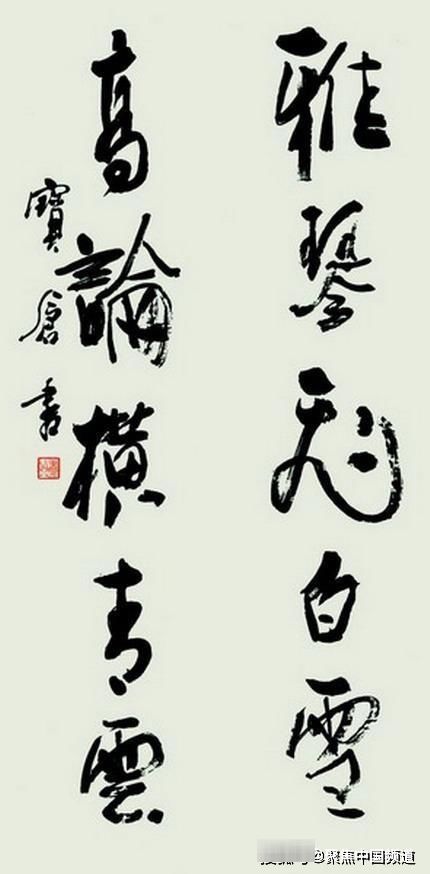 雅琴飛白雪
高論橫青雲
寶倉書
搜狐号@聚焦中国频道